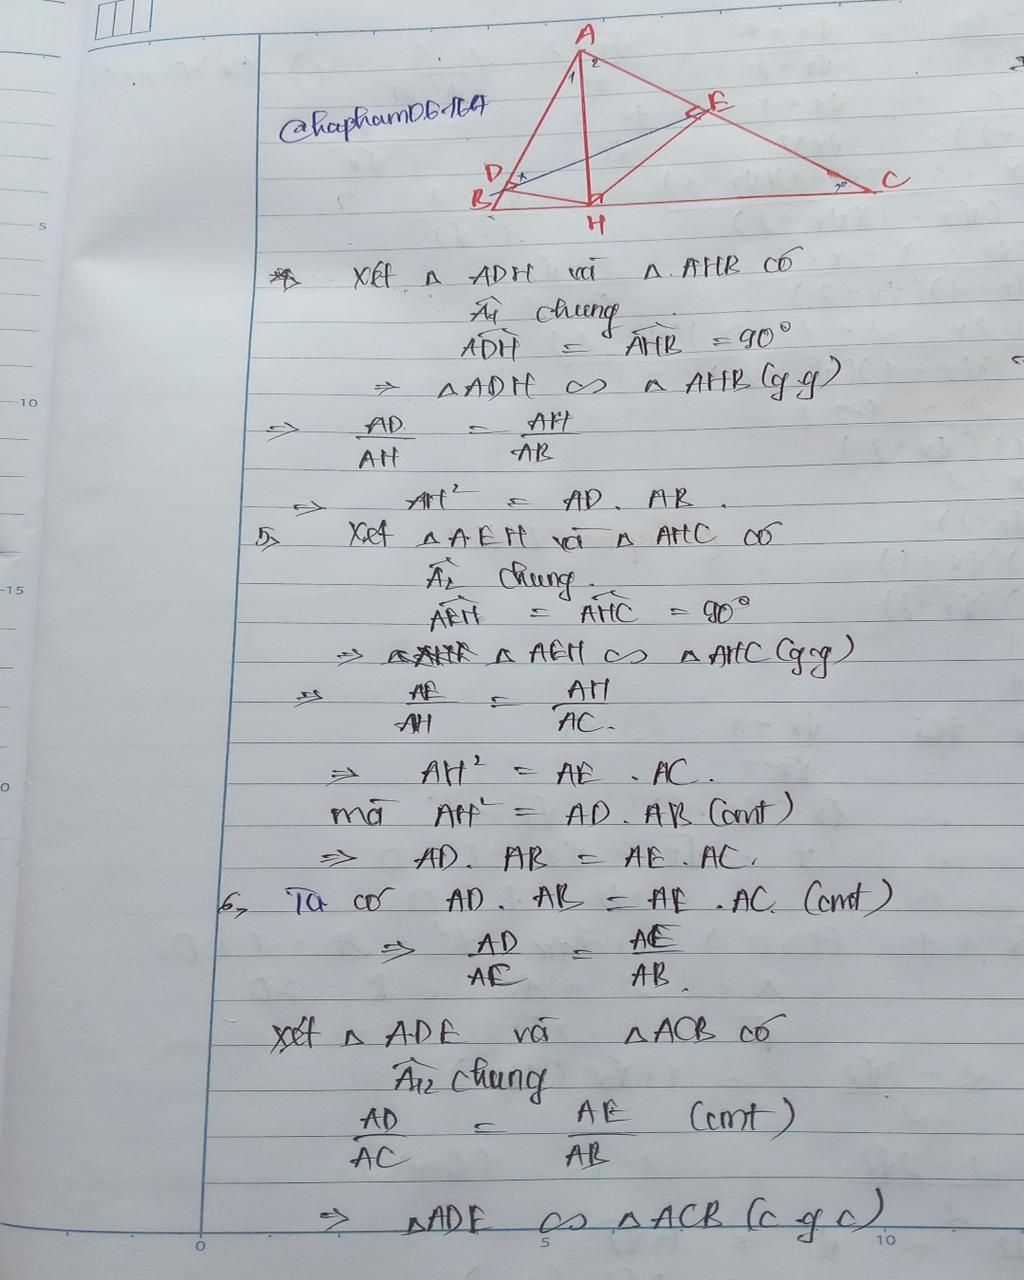 A
1 2
@hapham06164
E
D x
B
x C
H
Xét △ ADH và △ AHB có
Â1 chung
ADH = AHB = 90°
⇒ △ADH ∽ △ AHB (g.g)
⇒ AD/AH = AH/AB
⇒ AH² = AD . AB .
5, Xét △AEH và △ AHC có
Â2 chung.
AEH = AHC = 90°
⇒ △ AEH ∽ △AHC (g.g)
⇒ AE/AH = AH/AC.
⇒ AH² = AE . AC.
mà AH² = AD . AB (cmt)
⇒ AD. AB = AE . AC.
6, Ta có AD . AB = AE . AC. (cmt)
⇒ AD/AE = AC/AB.
Xét △ ADE và △ACB có
Â12 chung
AD/AC = AE/AB (cmt)
⇒ △ADE ∽ △ACB (c g c)
0 5 10
5
10
15
0